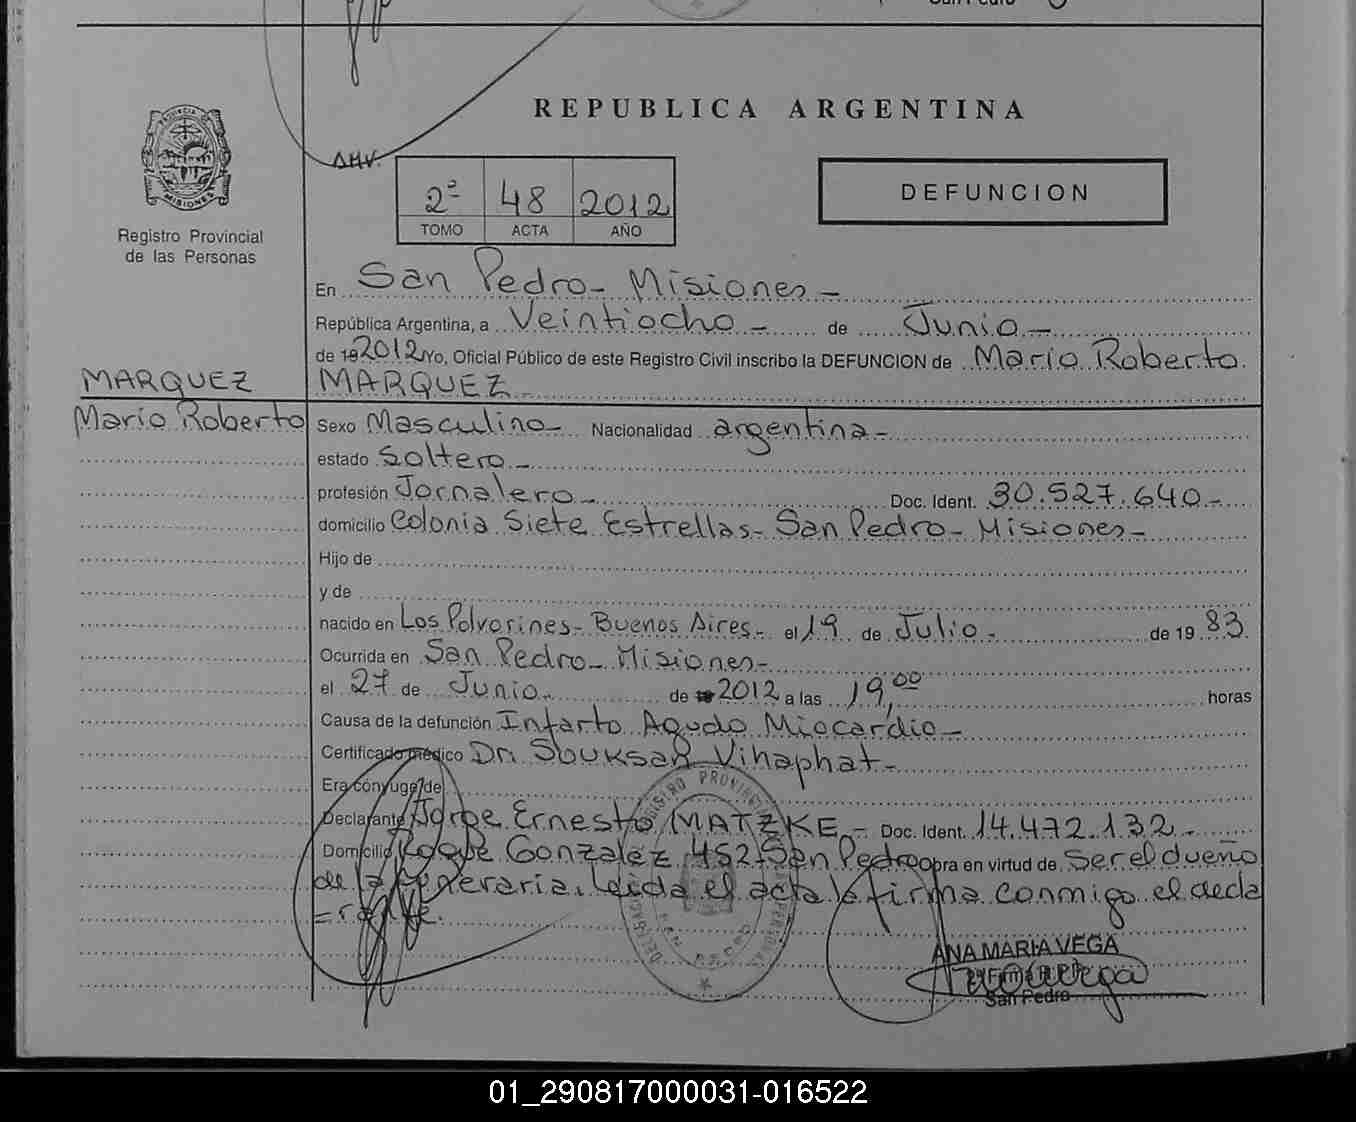 REPUBLICA ARGENTINA
AHV.
2º 48 2012
TOMO ACTA AÑO
DEFUNCION
PROVINCIA DE
MISIONES
Registro Provincial
de las Personas
En San Pedro - Misiones -
República Argentina, a Veintiocho - de Junio -
de 19 2012 Yo, Oficial Público de este Registro Civil inscribo la DEFUNCION de Mario Roberto
MARQUEZ
MARQUEZ
Mario Roberto
Sexo Masculino - Nacionalidad argentina -
estado Soltero -
profesión Jornalero - Doc. Ident. 30.527.640 -
domicilio Colonia Siete Estrellas - San Pedro - Misiones -
Hijo de
y de
nacido en Los Polvorines - Buenos Aires - el 19 de Julio - de 19 83
Ocurrida en San Pedro - Misiones -
el 27 de Junio - de 2012 a las 19,00 horas
Causa de la defunción Infarto Agudo Miocardio -
Certificado médico Dr. Souksan Vihaphat -
Era cónyuge de
Declarante Jorge Ernesto MATZKE - Doc. Ident. 14.472.132 -
Domicilio Roque Gonzalez 452 - San Pedro obra en virtud de ser el dueño
de la funeraria. Leida el acta la firma conmigo el decla
= rante.
REGISTRO PROVINCIAL
PERSONAS
ANA MARIA VEGA
San Pedro
01_290817000031-016522